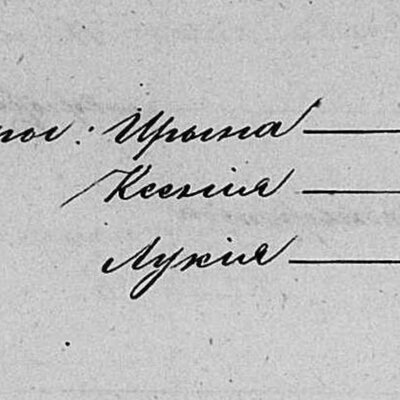 Ирына
Ксенія
Лукія